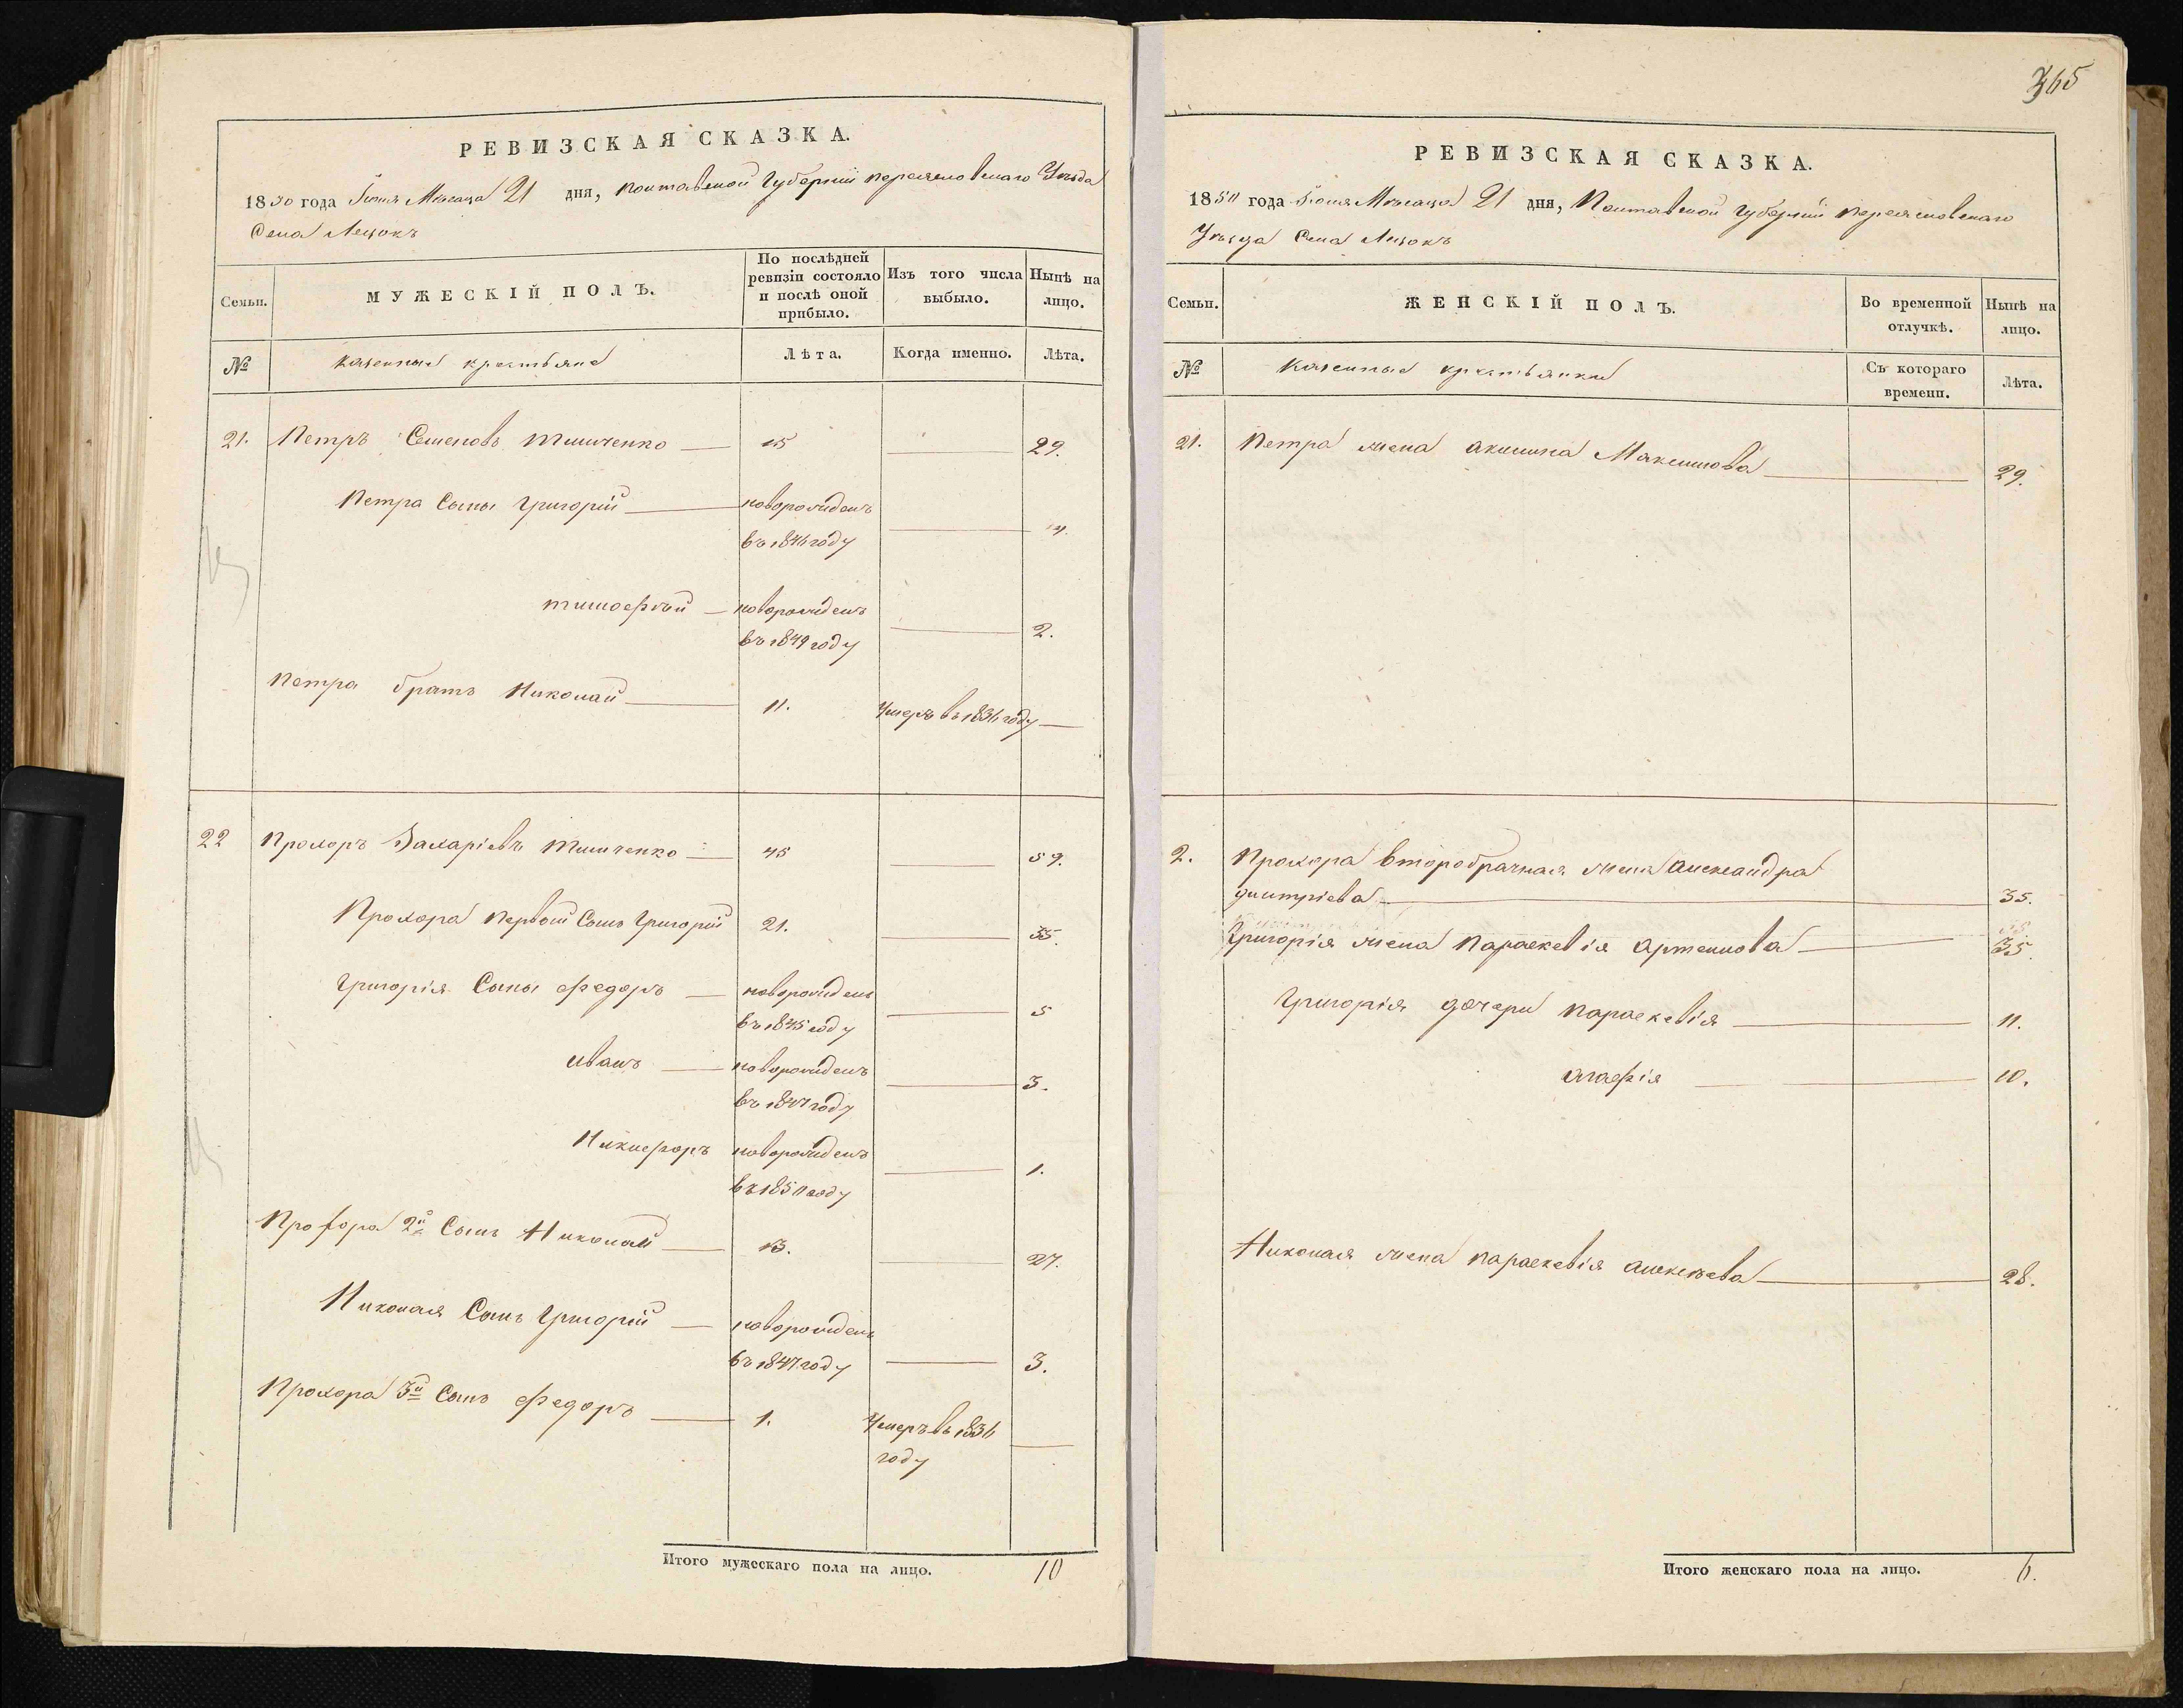 РЕВИЗСКАЯ СКАЗКА.
1850 года Іюня Мѣсяца 21 дня, Полтавской Губерніи Переяславскаго Уѣзда
Села Лецокъ
Семьи.
МУЖЕСКІЙ ПОЛЪ.
По послѣдней ревизіи состояло и послѣ оной прибыло.
Изъ того числа выбыло.
Нынѣ на лицо.
№
Казенные крестьяне
Лѣта.
Когда именно.
Лѣта.
21. Петръ Семеновъ Тимченко — 15 — 29.
Петра Сыны Григорій — новорожденъ
въ 1846 году — 4.
Тимофѣй — новорожденъ
въ 1849 году — 2.
Петра братъ Николай — 11. Умеръ въ 1836 году —
22 Прохоръ Захаріевъ Тимченко — 45 — 59.
Прохора первой Сынъ Григорій 21. — 35.
Григорія Сыны Федоръ — новорожденъ
въ 1845 году — 5
Иванъ — новорожденъ
въ 1847 году — 3.
Никифоръ новорожденъ
въ 1850 году — 1.
Прохора 2й Сынъ Николай — 13. — 27.
Николая Сынъ Григорій — новорожденъ
въ 1847 году — 3.
Прохора 3й Сынъ Федоръ — 1. Умеръ въ 1836
году —
Итого мужескаго пола на лицо. 10
365
РЕВИЗСКАЯ СКАЗКА.
1850 года Іюня Мѣсяца 21 дня, Полтавской Губерніи Переяславскаго
Уѣзда Села Лецокъ
Семьи.
ЖЕНСКІЙ ПОЛЪ.
Во временной отлучкѣ.
Нынѣ на лицо.
№
Казенные крестьянки
Съ котораго времени.
Лѣта.
21. Петра жена Акилина Максимова — 29.
2. Прохора второбрачная жена Александра
Дмитріева — 35.
Григорія жена Параскевія Артемова — 35.
Григорія дочери Параскевія — 11.
Агафія — 10.
Николая жена Параскевія Алексѣева — 28.
Итого женскаго пола на лицо. 6.